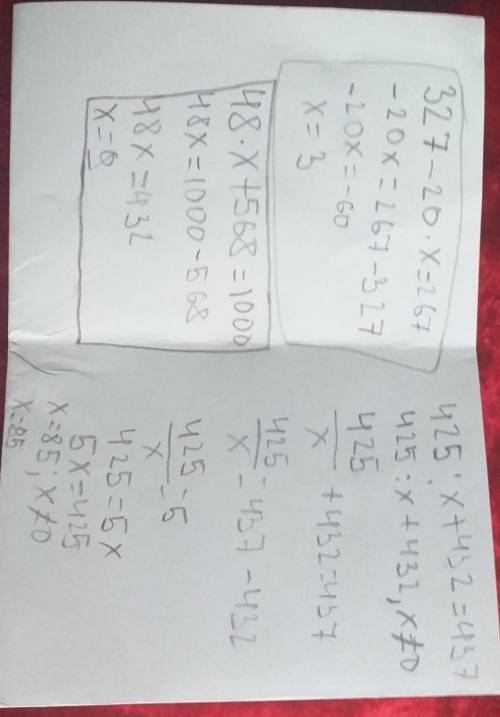 327-20·x=267
-20x=267-327
-20x=-60
x=3
48·x+568=1000
48x=1000-568
48x=432
425:x+432=437
425:x+432,x≠0
425/x+432=437
425/x=437-432
425/x=5
425=5x
5x=425
x=85;x≠0
x=85